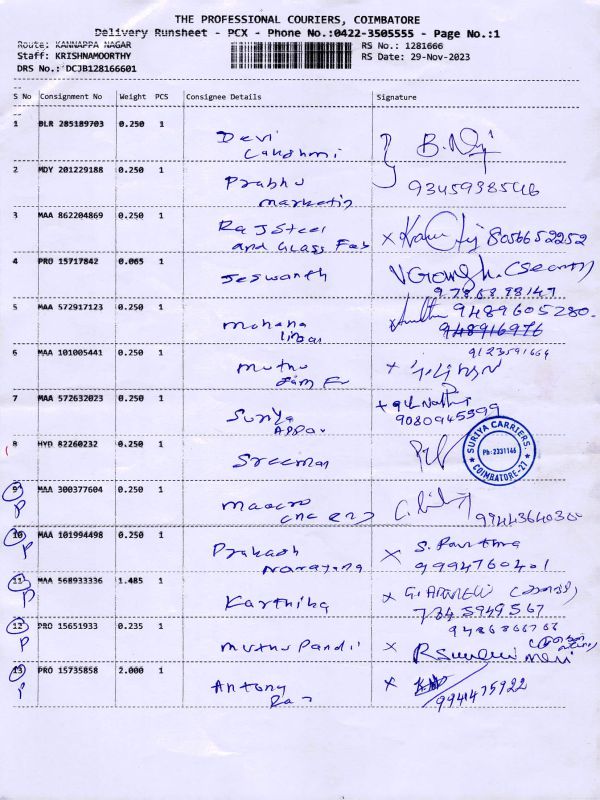 THE PROFESSIONAL COURIERS, COIMBATORE
Delivery Runsheet - PCX - Phone No.:0422-3505555 - Page No.:1
Route: KANNAPPA NAGAR
RS No.: 1281666
Staff: KRISHNAMOORTHY
RS Date: 29-Nov-2023
DRS No.: DCJB128166601
S No Consignment No Weight PCS Consignee Details Signature
1 BLR 285189703 0.250 1 Devi
Lakshmi
2 MDY 201229188 0.250 1 Prabhu
marketing
9345938546
3 MAA 862204869 0.250 1 Raj Steel
and Glass Fab
x 8056652252
4 PRO 15717842 0.065 1 Jeswanth
9786898147
5 MAA 572917123 0.250 1 Mohana
9489605280
948916976
6 MAA 101005441 0.250 1 muthu
9123591664
x
7 MAA 572632023 0.250 1 Suriya
Appa
9080945399
8 HYD 82260232 0.250 1 Sreeman
SURIYA CARRIERS.
Ph: 2331146
COIMBATORE-27
9 MAA 300377604 0.250 1
P
cnc eng
9944364030
10 MAA 101994498 0.250 1 Prakash
P
Narayana
x S. Pavithra
9994760401
11 MAA 568933336 1.485 1 Karthika
P
x
7345949567
12 PRO 15651933 0.235 1 muthu Pandi
P
9486866766
x
13 PRO 15735858 2.000 1 Antony
P
Raj
x 9941475922